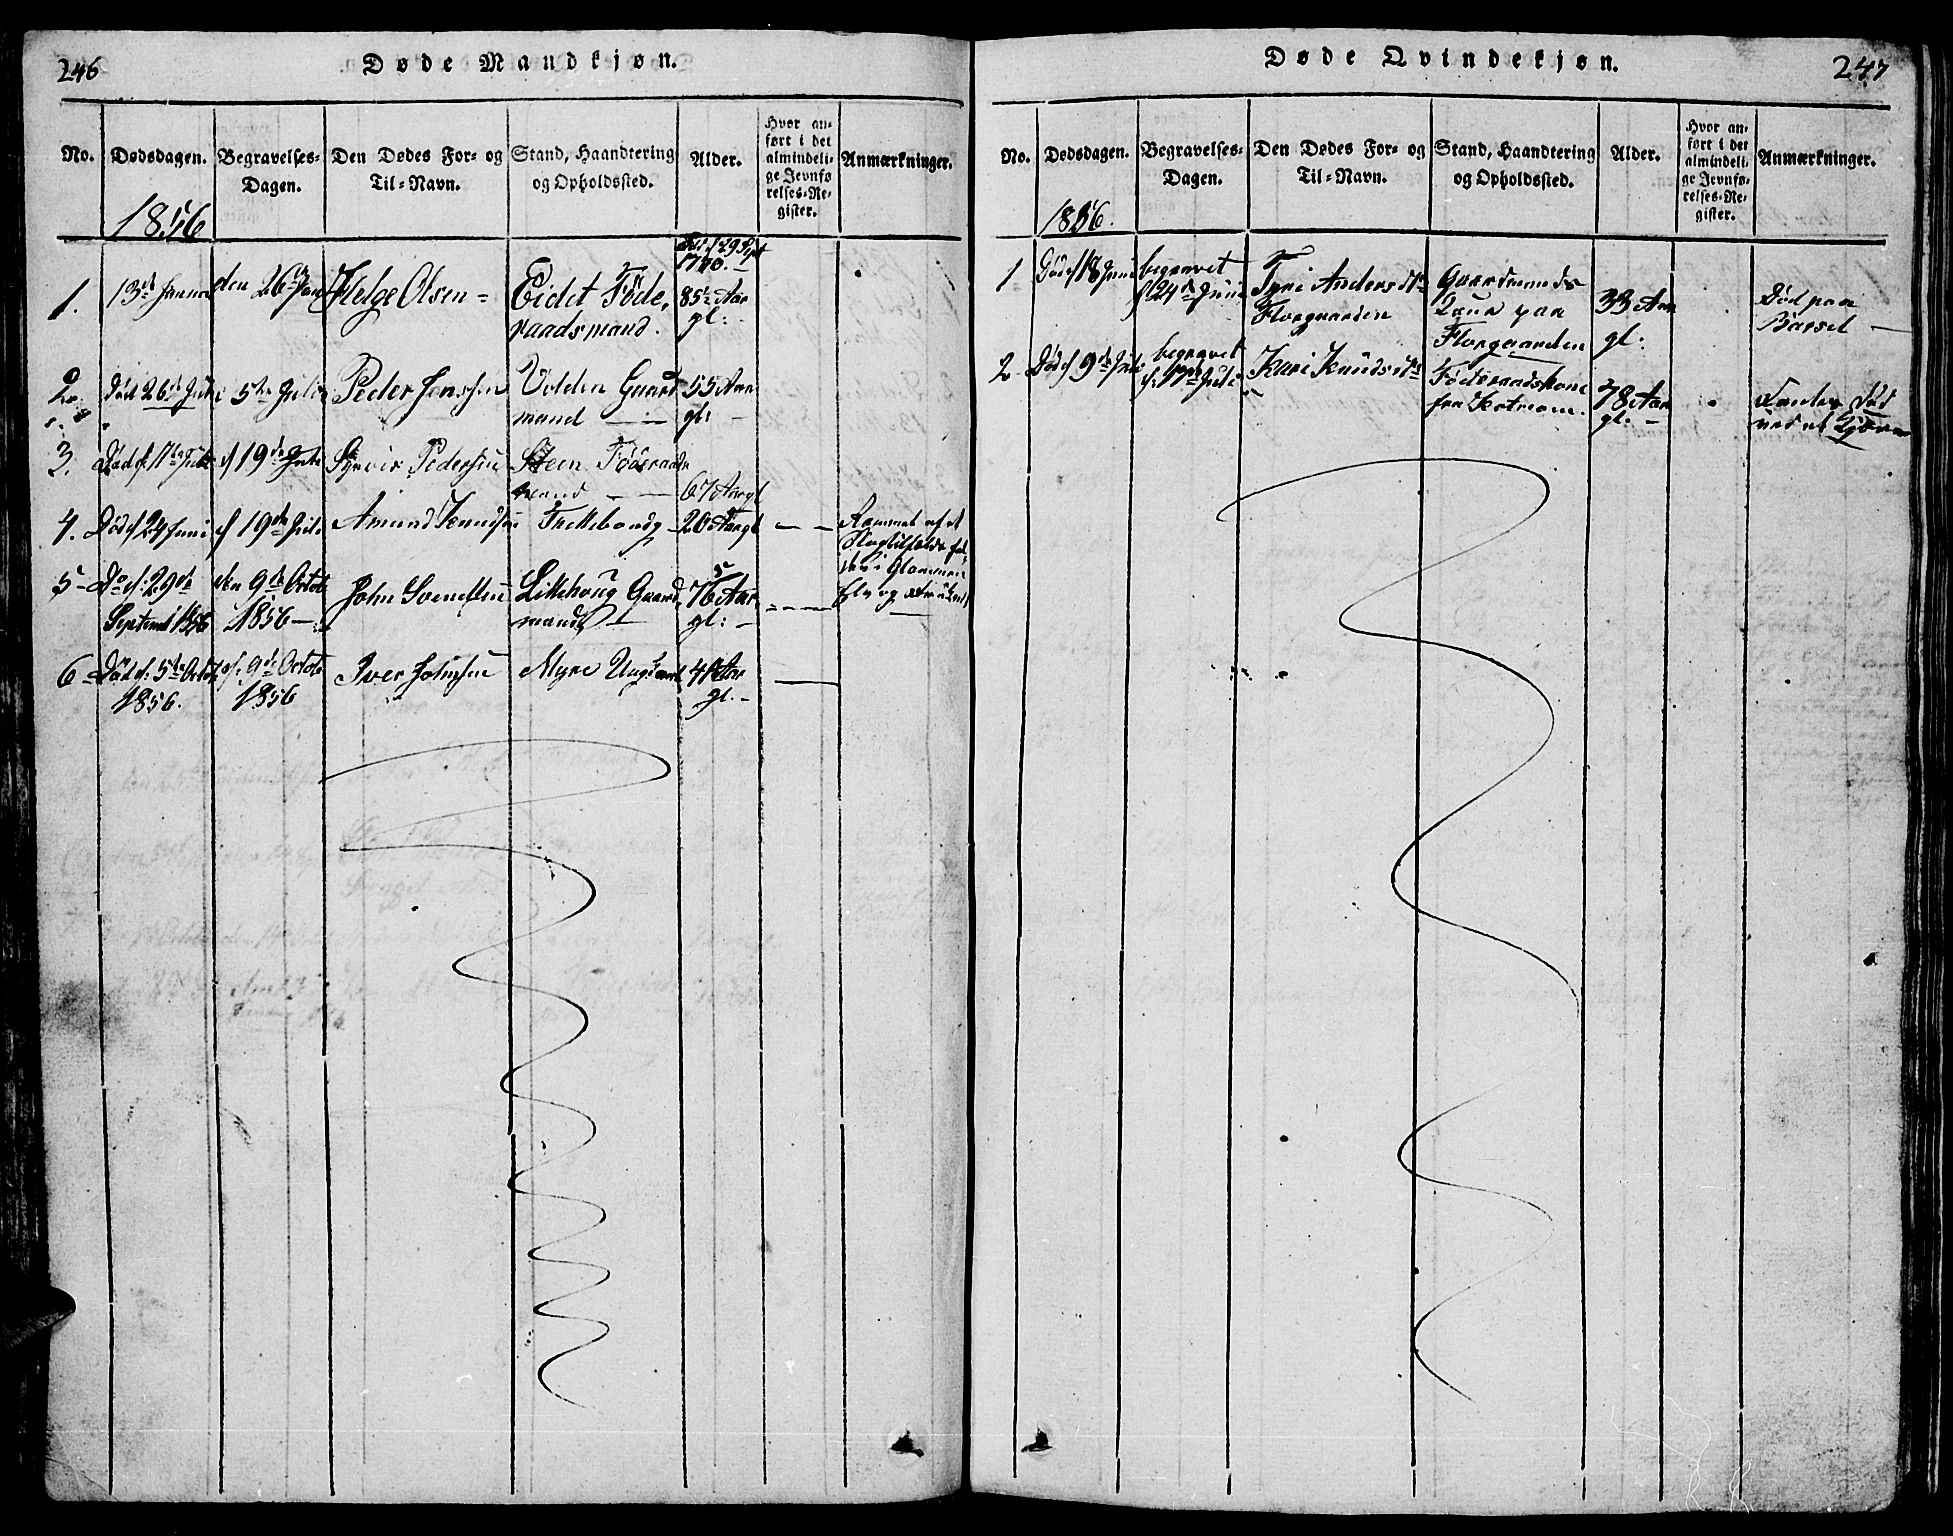 246
Døde Mandkjøn.
No.
Dødsdagen.
Begravelses-
Dagen.
Den Dødes For- og
Til-Navn.
Stand, Haandtering
og Opholdssted.
Alder.
Hvor an-
ført i det
almindeli-
ge Jevnfø
relses-Re-
gister.
Anmærkninger.
1856
1.
13de
den 26de Jan
Helge Olsen
Eidet Føde-
raadsmand.
29 Sept
1770.
85½ Aar
gl:
2.
Død 26de
5te Julii
Peder Jenssen
Volden Gaard
mand
55 Aar
gl:
3.
Død d. 17de
d 19de
Pedersen
Steen Føderaads
mand
67 Aar gl
4.
Død d 24 Juni
d 19de Juli
Amund
20 Aar gl
Rammet af et
i Glommen
Elv og
5
d. 29de
Septemb 1856
den 9de Octob
1856
John Svendsen
Lillehoug Gaard
mand
76 Aar
gl:
6
Død d. 5te Octob
1856.
d. 9de Octob
1856
Iver Johnsen
Myre
Aar
gl.
Døde Qvindekjøn.
247
No.
Dødsdagen.
Begravelses-
Dagen.
Den Dødes For- og
Til-Navn.
Stand, Haandtering
og Opholdssted.
Alder.
Hvor an-
ført i det
almindeli-
ge Jevnfø-
relses-Re-
gister.
Anmærkninger.
1856.
1
Død d 18 Juni
begravet
d 24de Junii
Tyri Andersdtr
Florgaarden
Gaardmands
Kone paa
Florgaarden
33 Aar
gl:
Død paa
Barsel
2
Død d 9de Juli
begravet
d. 17de Juli
Kari Knudsdtr
Føderaadskone
fra
78 Aar
gl.
Død
ved et